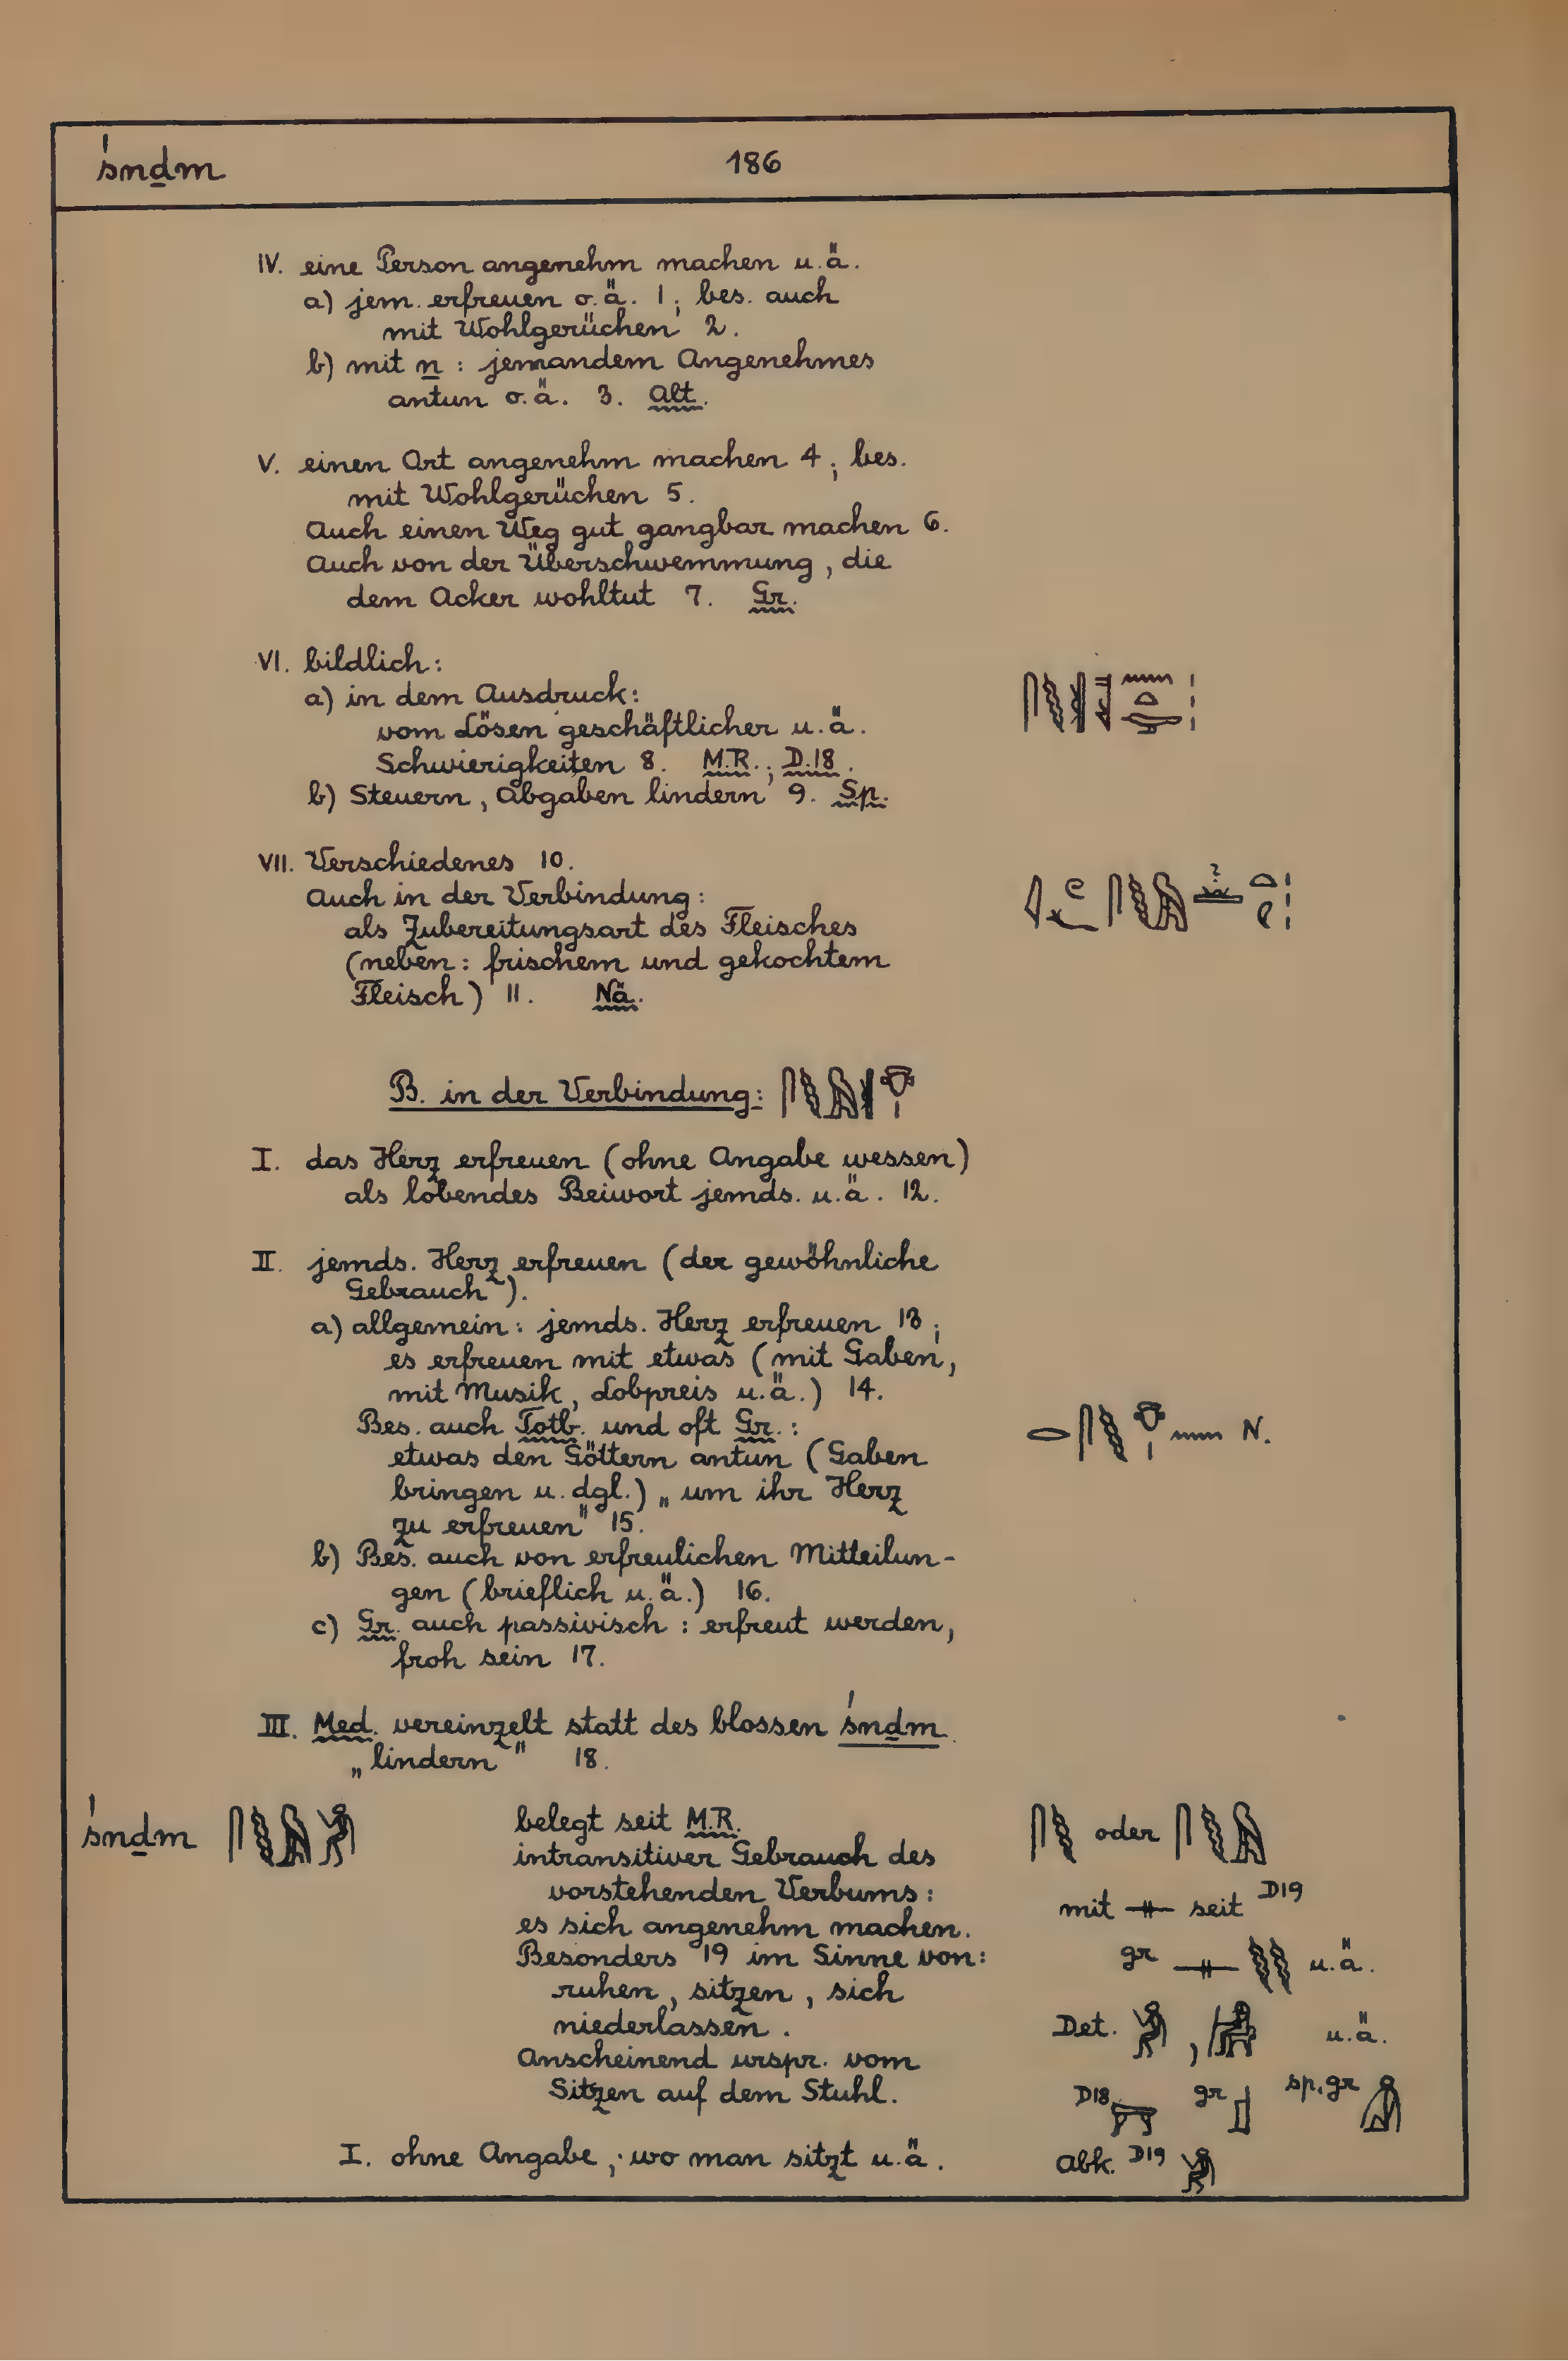 śnḏm 186
IV. eine Person angenehm machen u.ä.
a) jem. erfreuen o.ä. 1; bes. auch
mit Wohlgerüchen 2.
b) mit n : jemandem Angenehmes
antun o.ä. 3. Alt.
V. einen Ort angenehm machen 4; bes.
mit Wohlgerüchen 5.
Auch einen Weg gut gangbar machen 6.
Auch von der Überschwemmung, die
dem Acker wohltut 7. Gr.
VI. bildlich:
a) in dem Ausdruck:
vom Lösen geschäftlicher u.ä.
Schwierigkeiten 8. M.R.; D.18.
b) Steuern, Abgaben lindern 9. Sp.
VII. Verschiedenes 10.
Auch in der Verbindung:
als Zubereitungsart des Fleisches
(neben: frischem und gekochtem
Fleisch) 11. Nä.
B. in der Verbindung:
I. das Herz erfreuen (ohne Angabe wessen)
als lobendes Beiwort jemds. u.ä. 12.
II. jemds. Herz erfreuen (der gewöhnliche
Gebrauch).
a) allgemein: jemds. Herz erfreuen 13;
es erfreuen mit etwas (mit Gaben,
mit Musik, Lobpreis u.ä.) 14.
Bes. auch Totb. und oft Gr.:
N.
etwas den Göttern antun (Gaben
bringen u. dgl.) „um ihr Herz
zu erfreuen" 15.
b) Bes. auch von erfreulichen Mitteilun-
gen (brieflich u.ä.) 16.
c) Gr. auch passivisch: erfreut werden,
froh sein 17.
III. Med. vereinzelt statt des blossen śnḏm
„lindern" 18.
śnḏm
belegt seit M.R.
intransitiver Gebrauch des
vorstehenden Verbums:
es sich angenehm machen.
Besonders 19 im Sinne von:
ruhen, sitzen, sich
niederlassen.
Anscheinend urspr. vom
Sitzen auf dem Stuhl.
I. ohne Angabe, wo man sitzt u.ä.
oder
mit seit D19
gr u.ä.
Det. , u.ä.
D18 gr sp.gr
Abk. D19